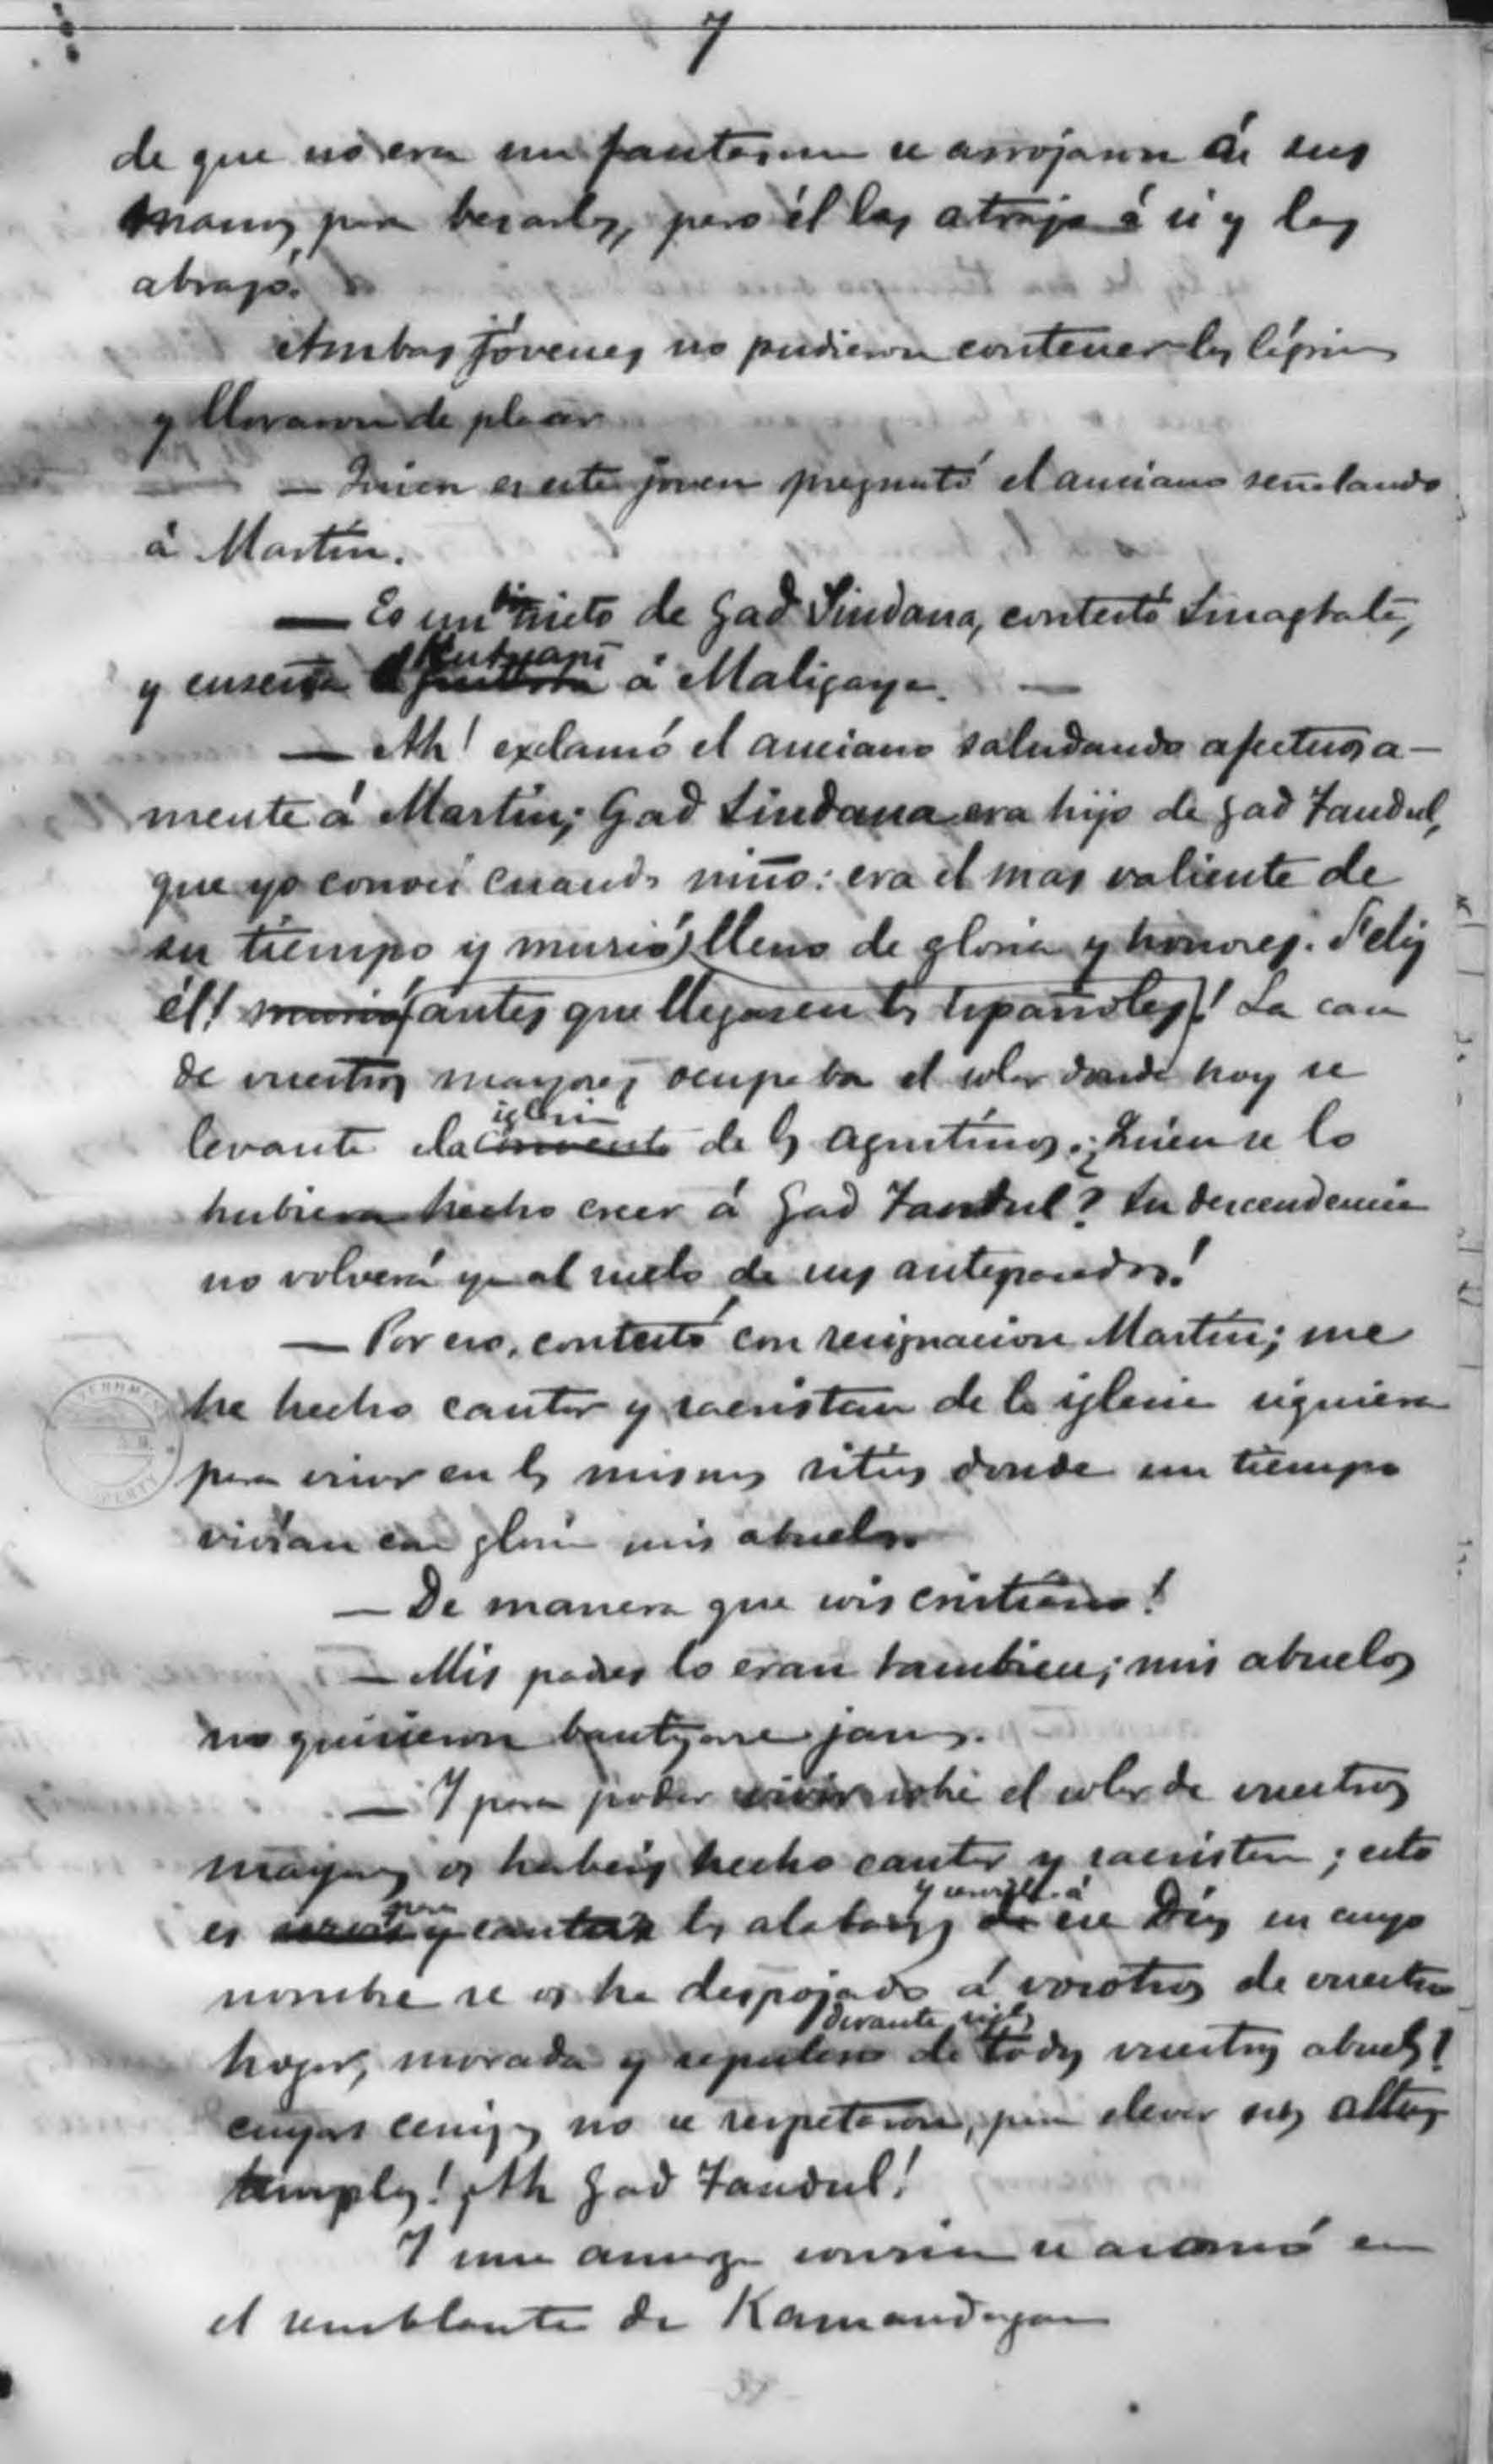 7
de que no era un fantasma se arrojaron á sus
manos para besarlas, pero él las atrajo á si y las
abrazó.
Ambas jóvenes no pudieron contener las lágrimas
y lloraron de placer
— Quien es este joven preguntó el anciano señalando
á Martin.
— Es un biznieto de Gad Sindana, contestó Sinagtala,
y enseña el kutyapî á Maligaya. —
— Ah! exclamó el anciano saludando afectuosa-
mente á Martin; Gad Sindana era hijo de Gad Tandul,
que yo conocí cuando niño: era el mas valiente de
su tiempo y murió lleno de gloria y honores. Feliz
él! murió (antes que llegasen los españoles)! La casa
de vuestros mayores ocupaba el solar donde hoy se
levanta la iglesia convento de los Agustinos. ¿Quien se lo
hubiera hecho creer á Gad Tandul? Su descendencia
no volverá ya al suelo de sus antepasados!
— Por eso, contestó con resignacion Martin; me
he hecho cantor y sacristan de la iglesia siquiera
para vivir en los mismos sitios donde un tiempo
vivían con gloria mis abuelos
— De manera que sois cristiano!
— Mis padres lo eran tambien; mis abuelos
no quisieron bautizarse jamas.
— Y para poder vivir sobre el solar de vuestros
mayores os habeis hecho cantor y sacristan; esto
es para y cantar las alabanzas y de ese Dios en cuyo
nombre se os ha despojado á vosotros de vuestro
hogar, morada y sepulcro durante siglos de todos vuestros abuelos!
cuyas cenizas no se respetaron, para elevar sus altos
templos! Ah Gad Tandul!
Y una amarga sonrisa se asomó en
el semblante de Kamandagan